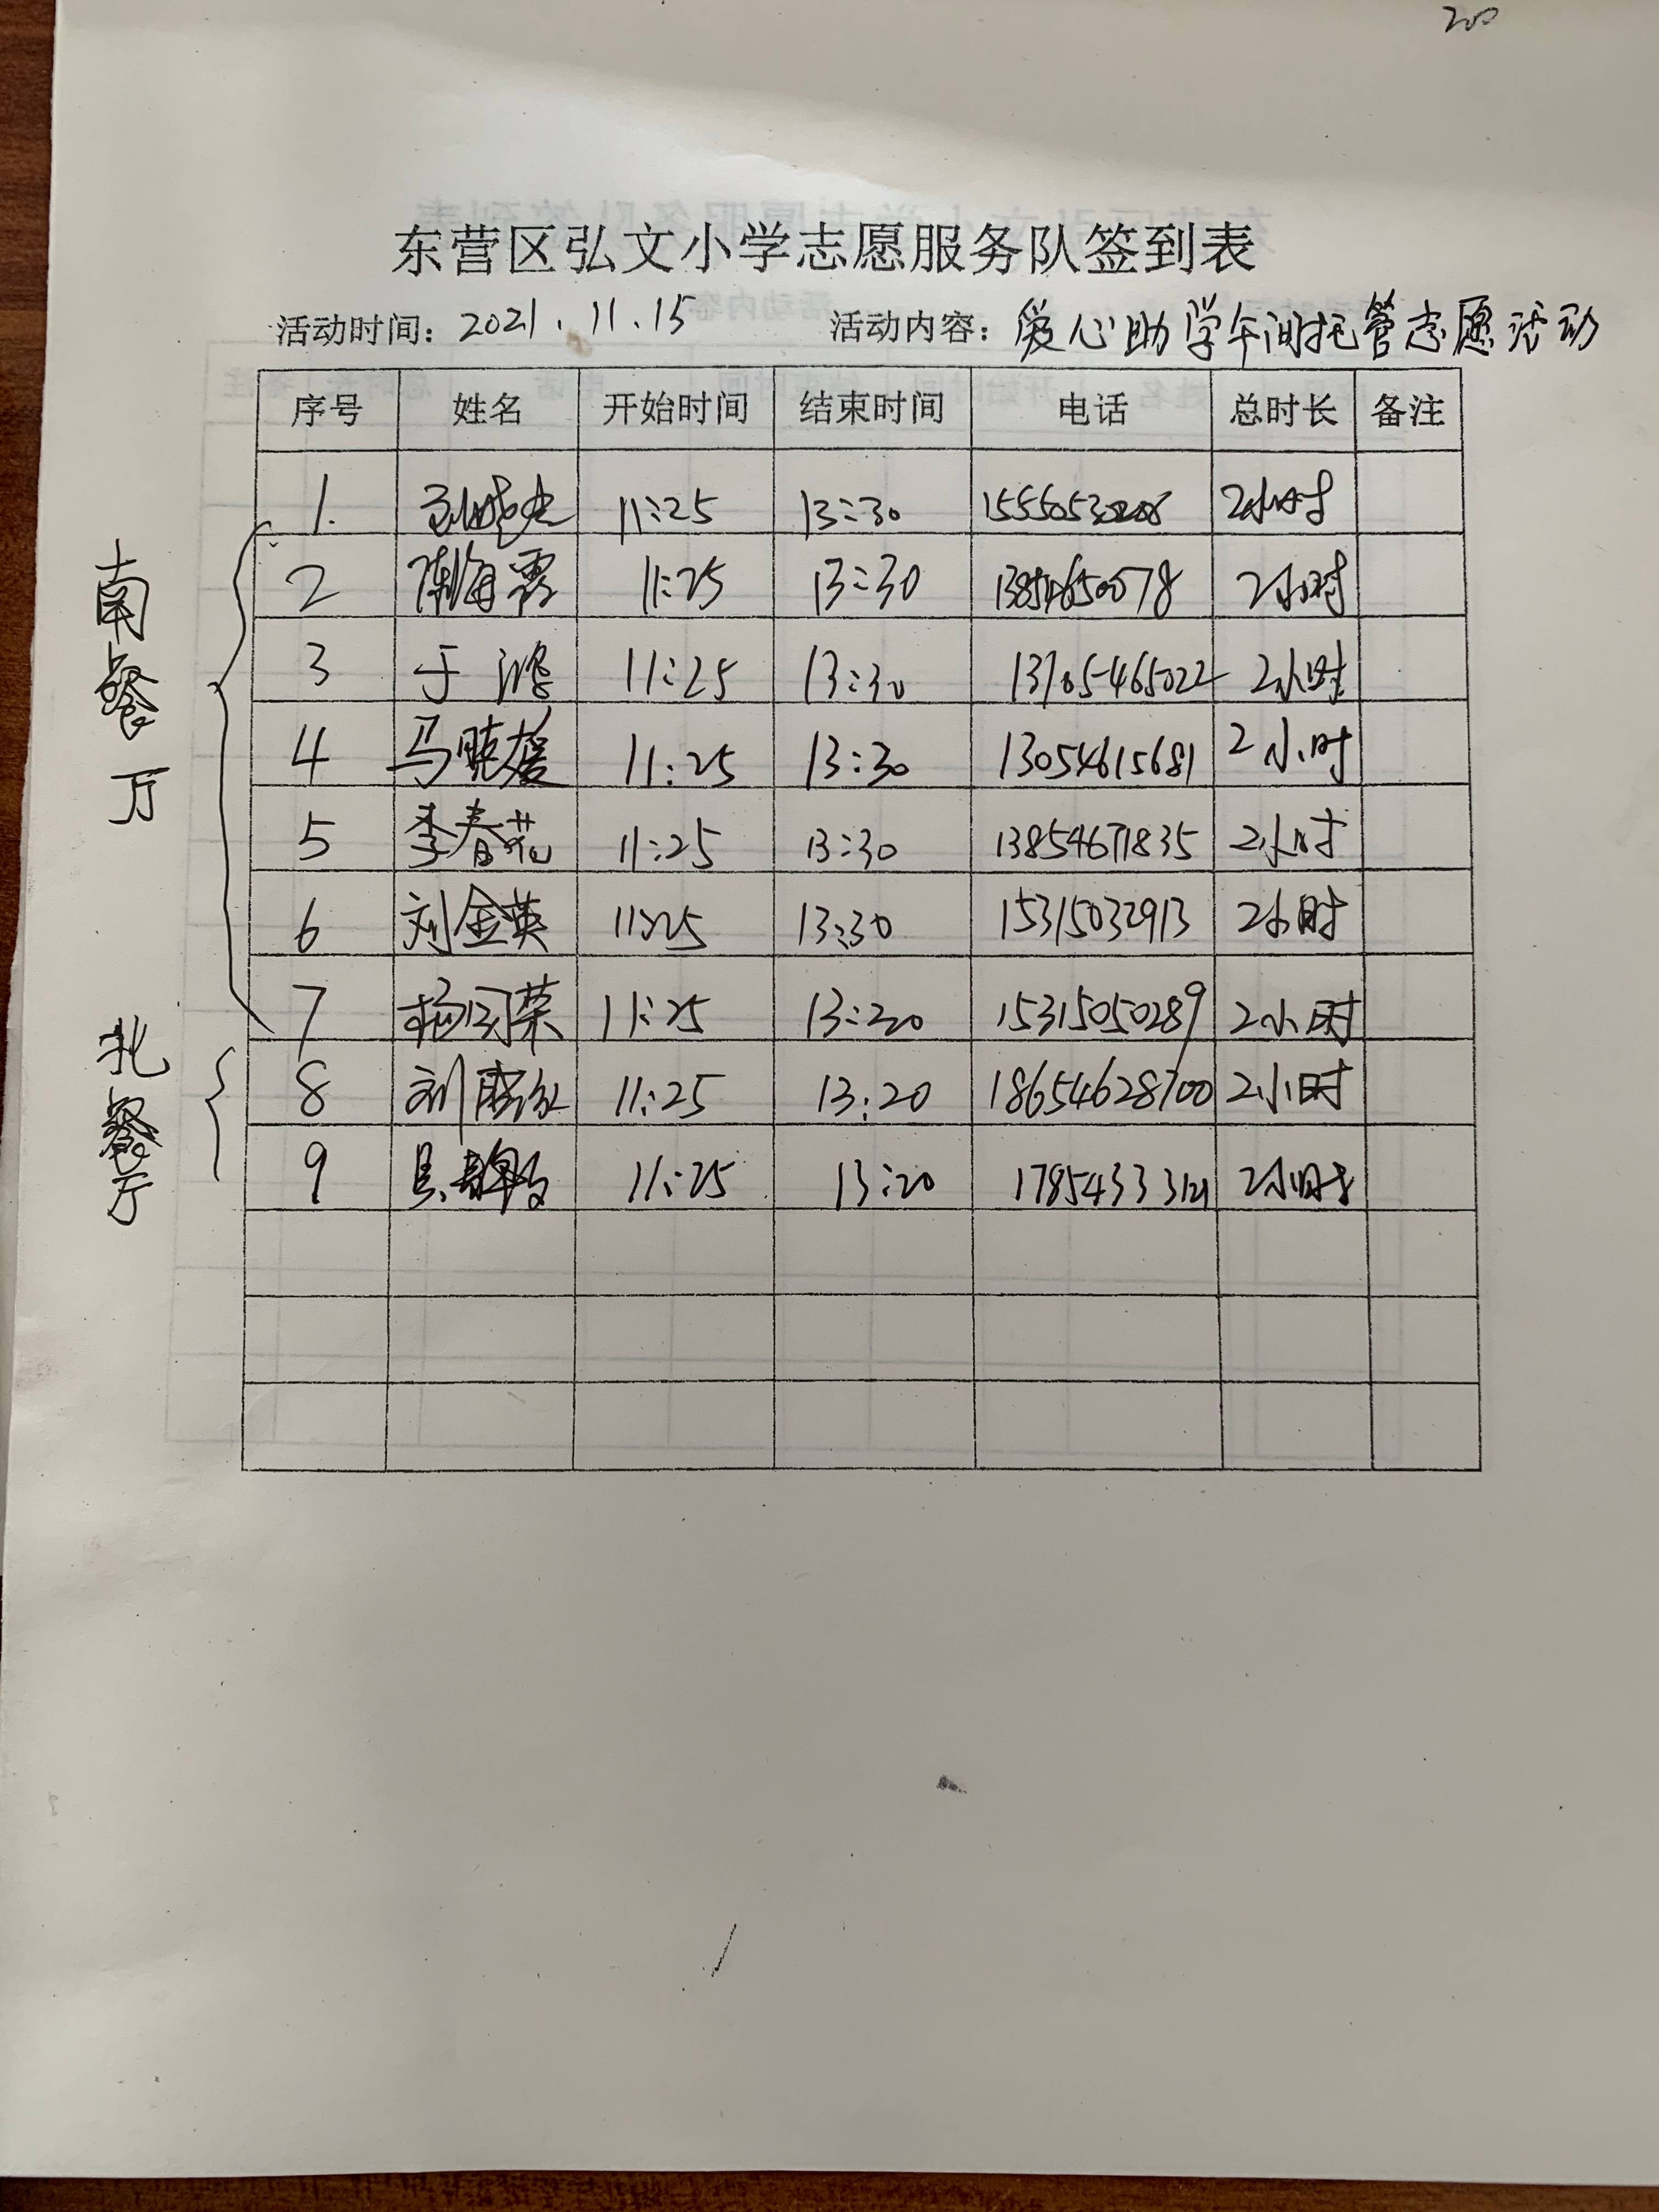 200
东营区弘文小学志愿服务队签到表
活动时间: 2021.11.15 活动内容: 爱心助学午间托管志愿活动
序号 姓名 开始时间 结束时间 电话 总时长 备注
南餐厅
1. 11:25 13:30 2小时
2 陈海霞 11:25 13:30 13854650078 2小时
3 于鸿 11:25 13:30 13705465022 2小时
4 马晓媛 11:25 13:30 13054615681 2小时
5 李春花 11:25 13:30 13854671835 2小时
6 刘金英 11:25 13:30 15315032913 2小时
7 杨同荣 11:25 13:20 15315050289 2小时
北餐厅
8 11:25 13:20 18654628700 2小时
9 11:25 13:20 17854333121 2小时